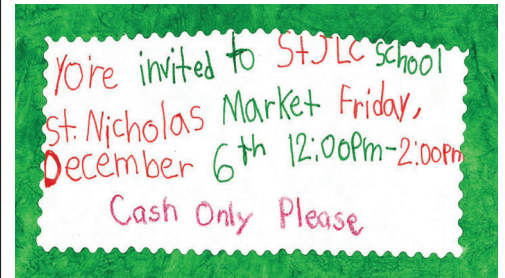 Yo're invited to StJLC School
St. Nicholas Market Friday,
December 6th 12:00pm-2:00pm
Cash Only Please